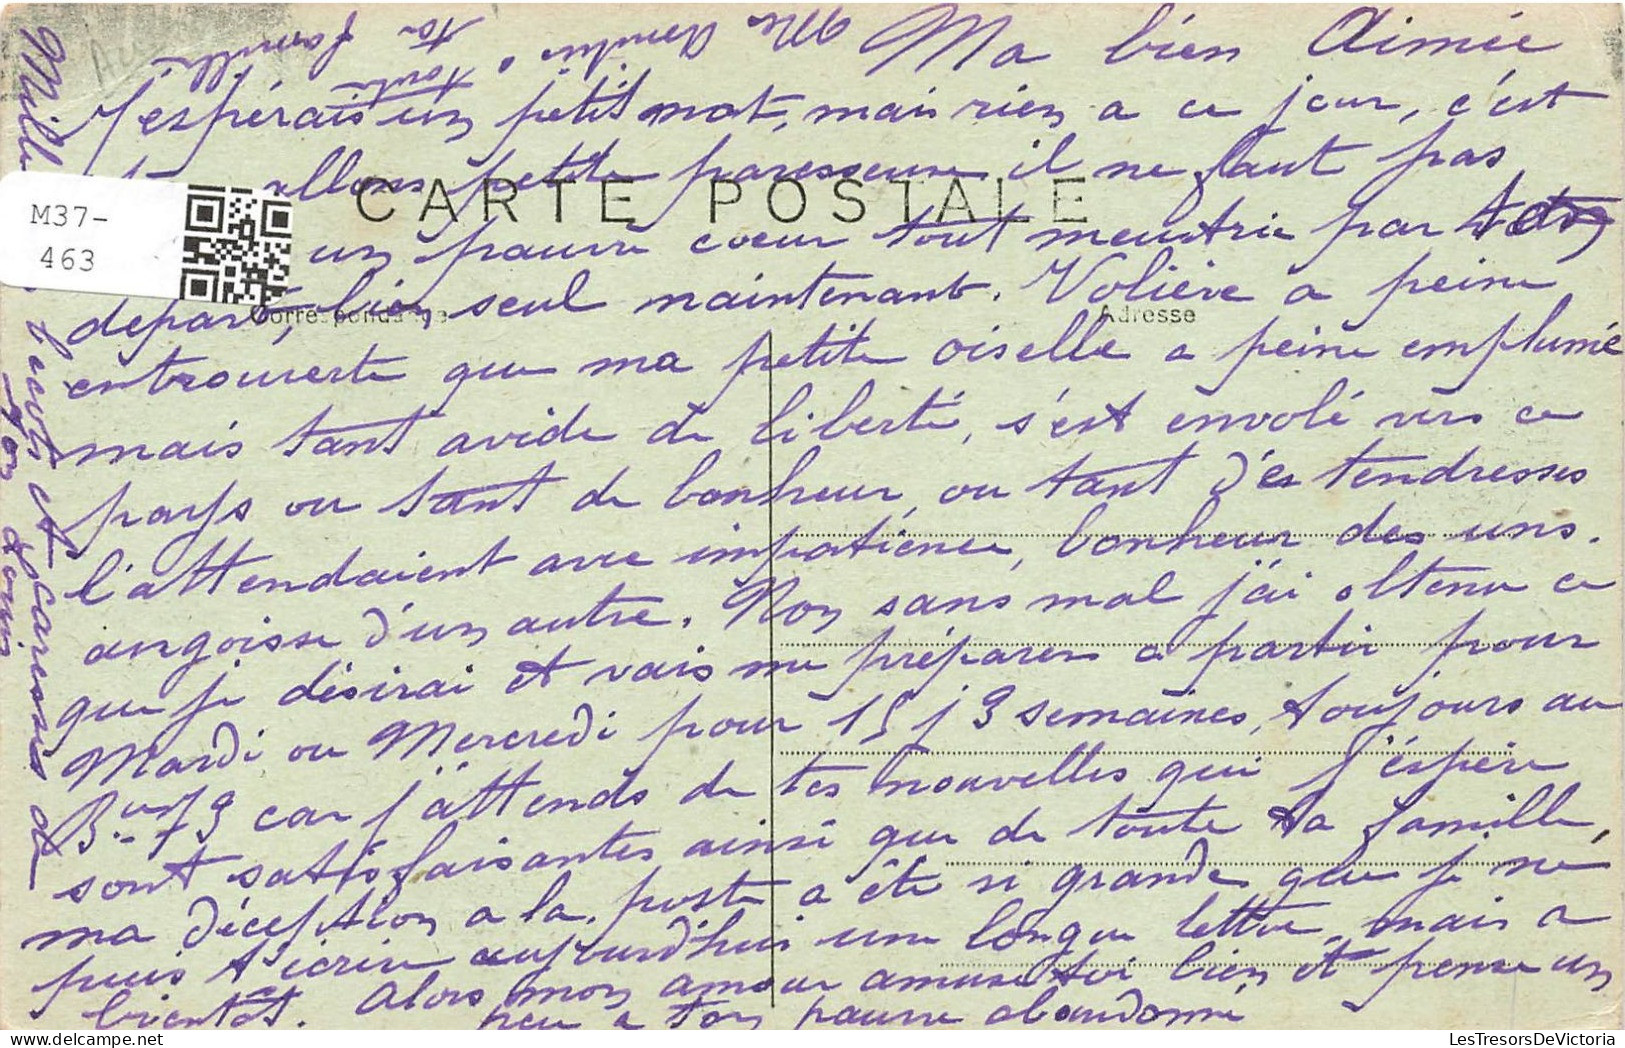 Ma bien Aimée
J'espérais un petit mot, mais rien a ce jour, c'est
allons petite paresseuse il ne faut pas
un pauvre coeur tout meurtrie par ton
depart, bien seul maintenant. Volière a peine
entrouverte que ma petite oiselle a peine emplumé
mais tant avide de liberté, s'est envolé vers ce
pays ou tant de bonheur, ou tant des tendresses
l'attendaient avec impatience, bonheur des uns.
angoisse d'un autre. Non sans mal j'ai obtenu ce
que je désirai et vais me préparer a partir pour
Mardi ou Mercredi pour 15 j 3 semaines, toujours au
car j'attends de tes nouvelles qui j'éspère
sont satisfaisantes, ainsi que de toute ta famille,
ma déception a la poste a été si grande que je ne
puis t'écrire aujourd'hui une longue lettre, mais a
bientôt. Alors mon amour amuse toi bien et pense un
peu a ton pauvre abandonné
Mille
et caresses de
ton Louis
toute
ta famille
CARTE POSTALE
Correspondance
Adresse
M37-
463
LesTresorsDeVictoria